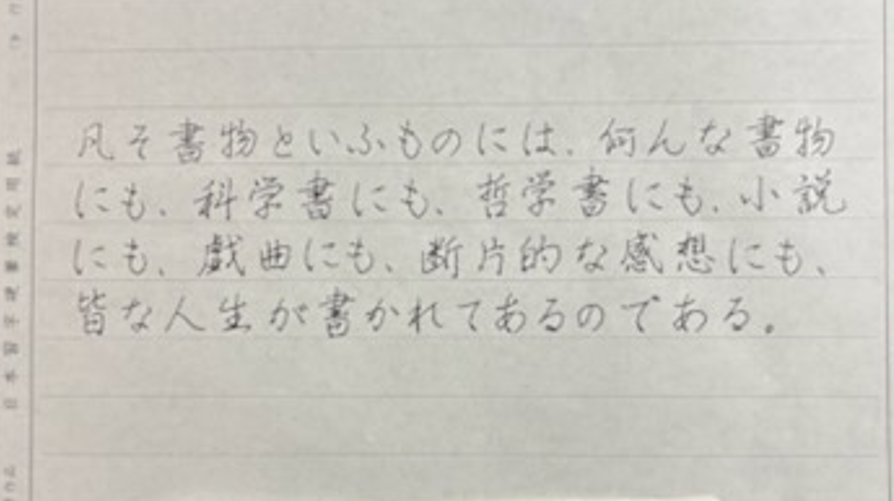 凡そ書物といふものには、何んな書物
にも、科学書にも、哲学書にも、小説
にも、戯曲にも、断片的な感想にも、
皆な人生が書かれてあるのである。
日本習字硬筆検定用紙